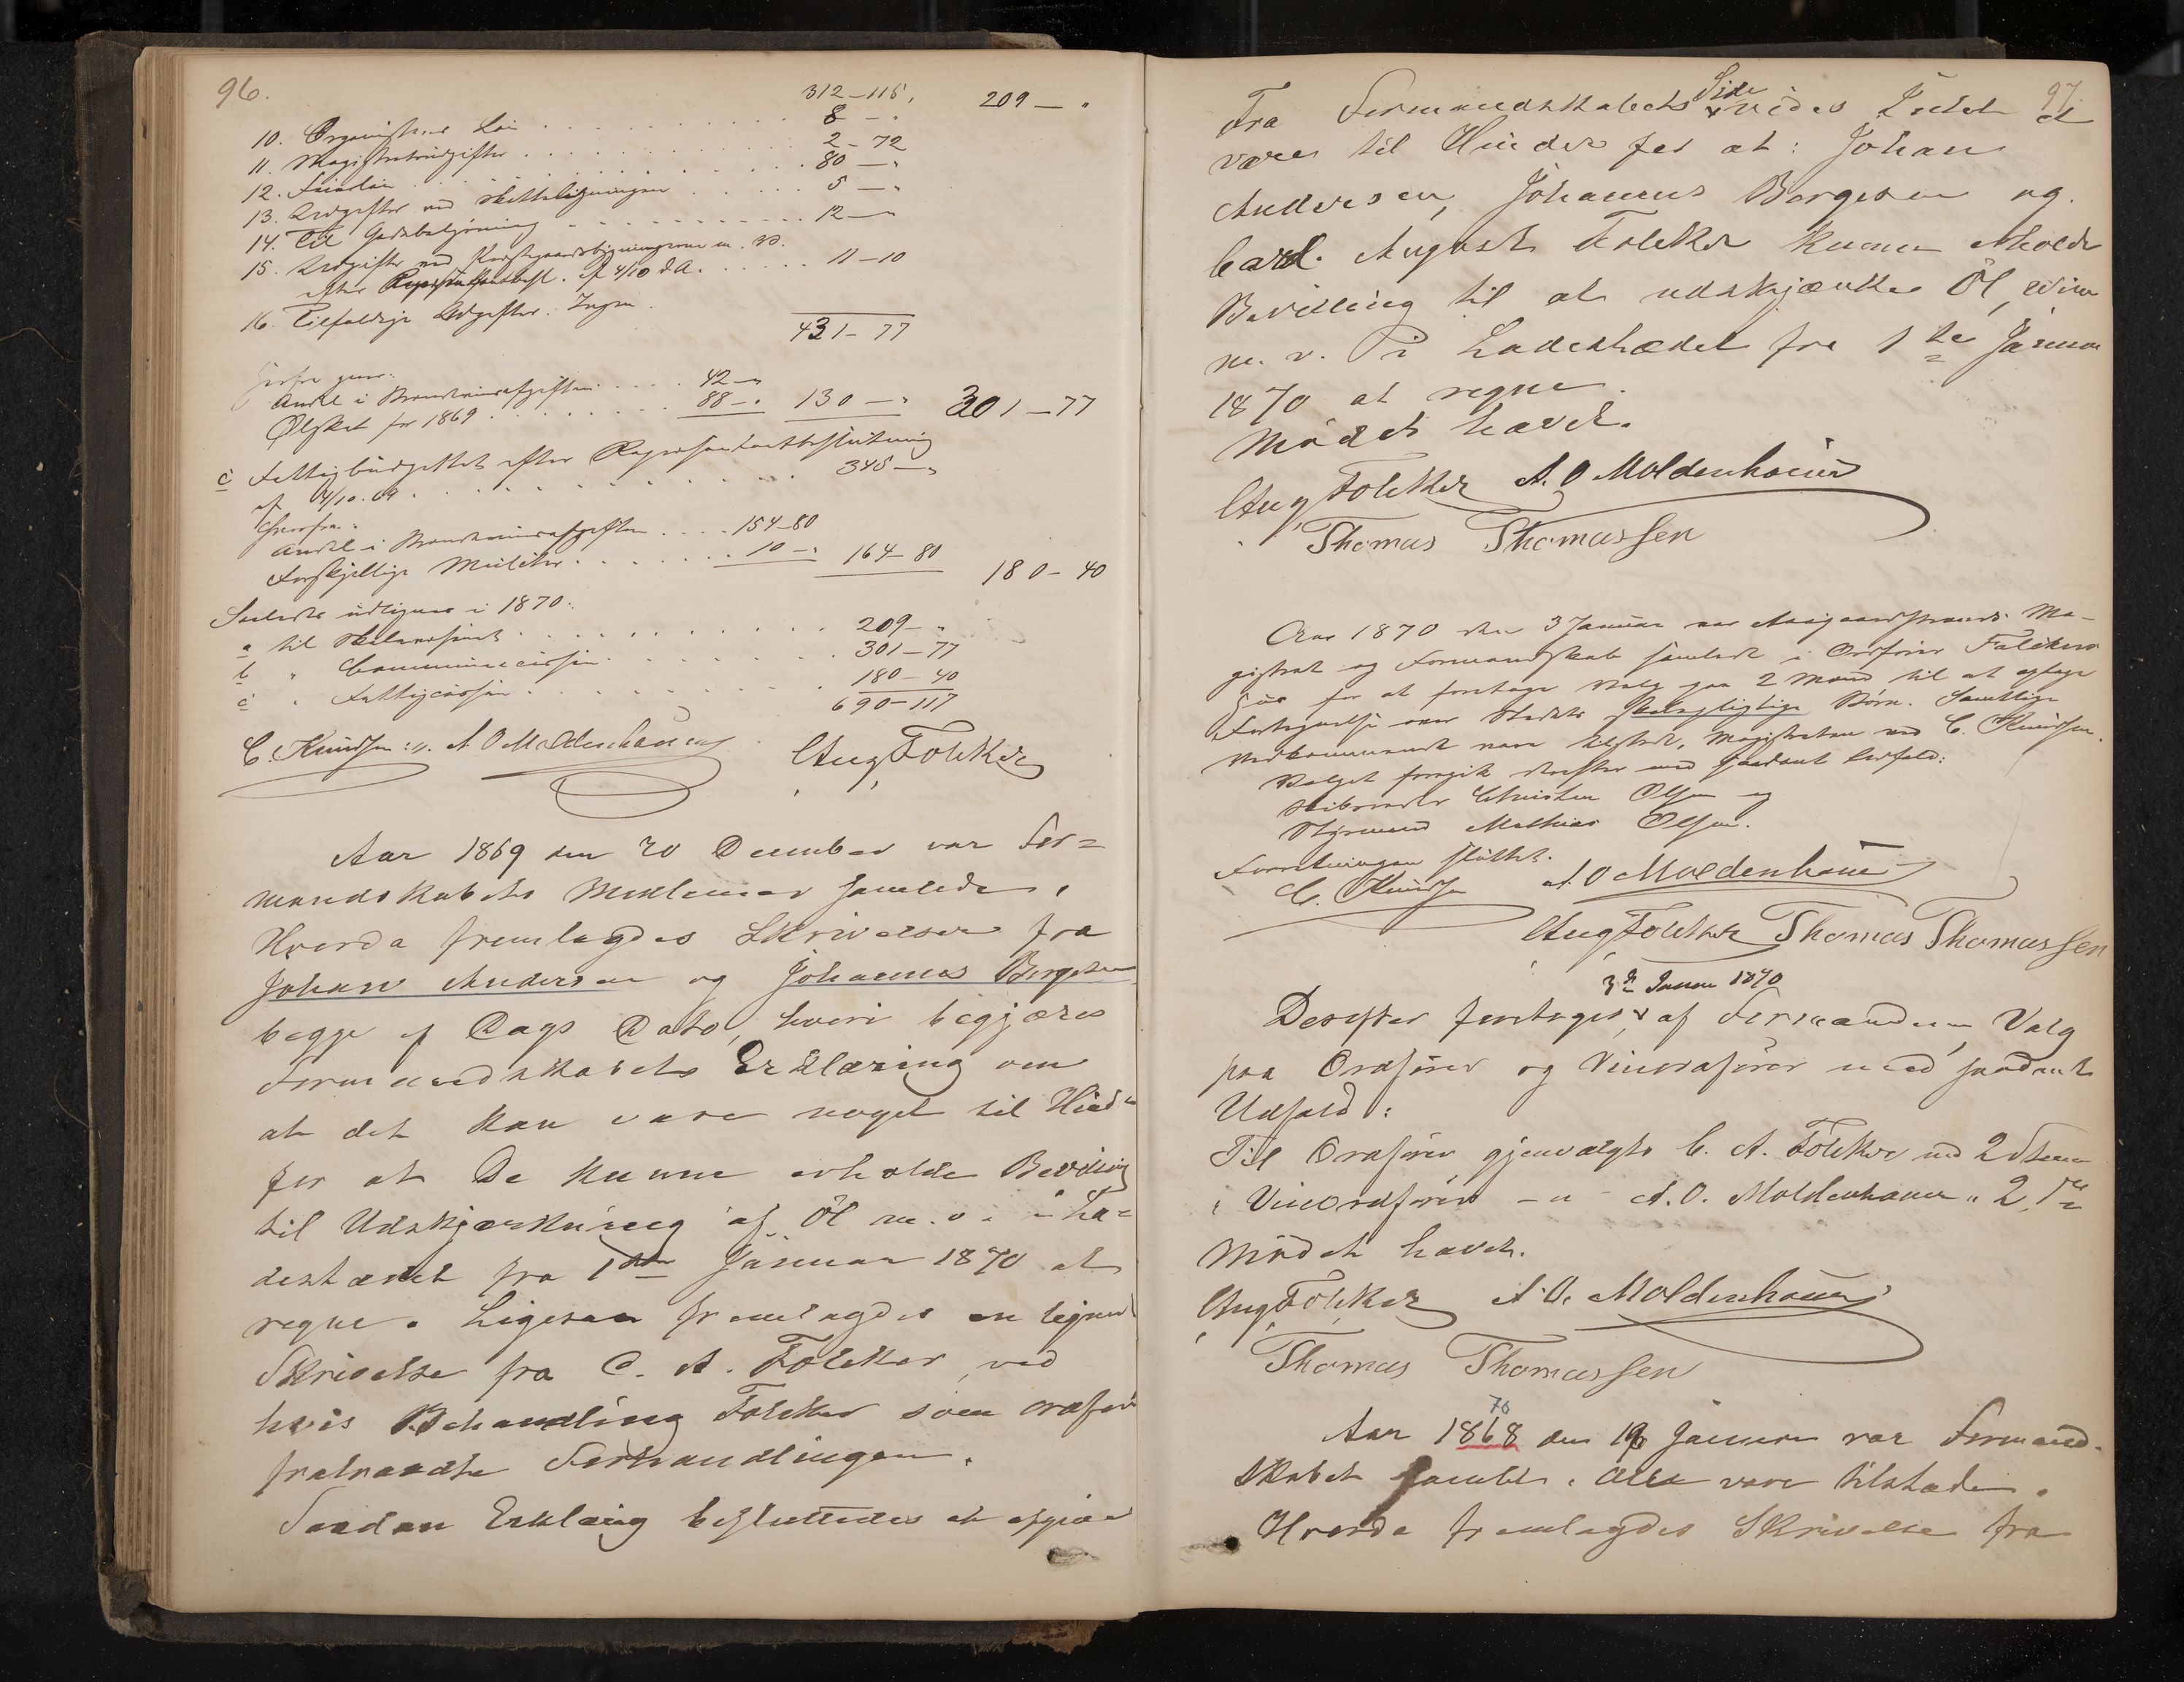 96.
312–115. 209 – "
10. Organistens Løn . . . 8 – "
11. Magistratsudgifter . . . 2 – 72
12. . . . 80 – "
13. Udgifter ved Skatteligningen . . . 5 – "
14. Til Gadebelysning . . . 12 – "
15. Udgifter ved m. V.
efter af 4/10 d A. . . . 11 – 10
16. Tilfældige Udgifter. Ingen.
431 – 77
Andel i Brændevinsafgiften . . . 42 – "
Ølskat for 1869 . . . 88 – " 130 – " 301 – 77
c Fattigbudgettet efter Repræsentantbeslutning
af 4/10. 69 . . . 345 – "
Herfra:
Andel i Brændevinsafgiften . . . 154–80
Forskjellige Mulkter . . . 10 – " 164–80
180–40
Saaledes udlignes i 1870:
a til Skolevæsenet . . . 209 – "
b " Communecassen . . . 301–77
c " Fattigcassen . . . 180–40
690–117
C. Knudsen A. O Moldenhauer Aug Fölcker
Aar 1869 den 20 December var For=
mandskabets Medlemer samlede.
Hvorda fremlagdes Skrivelser fra
Johan Andersen og Johannes Borgesen
begge af Dags Dato, hvori begjæres
Formandskabets Erklæring om
at det kan være noget til Hinder
for at De kunne erholde Bevilling
til Udskjænkning af Öl m. v. i La=
destædet fra 1ste Januar 1870 at
regne. Ligesaa fremlagdes en lignende
Skrivelse fra C. A. Fölcker, ved
hvis Behandling Fölcker som Ordfører
fratraadte Forhandlingen.
Saadan Erklæring besluttedes at afgive
97
Fra Formandskabets Side vides Intet at
være til Hinder for at: Johan
Andersen, Johannes Borgesen og
Carl August Fölcker kunne erholde
Bevilling til at udskjænke Öl, Viin
m. v. i Ladestædet fra 1ste Januar
1870 at regne.
Mödet hævet.
Aug Fölcker A. O Moldenhauer
Thomas Thomassen
Aar 1870 den 3 Januar var Aasgaardstrands Ma-
gistrat og Formandskab samlede i Ordfører Fölckers
Huus for at foretage Valg paa 2 Mænd til at optage
Fortegnelse over Stedets skolepligtige Børn. Samtlige
Vedkommende vare tilstede, Magistraten ved C. Knudsen.
Valget foregik derefter med saadant Udfald:
Skibsreder Christen Olsen og
Styrmand Mathias Olsen.
Forretningen sluttet.
C. Knudsen A. O Moldenhauer
Aug Fölcker Thomas Thomassen
3die Januar 1870
Derefter foretoges af Formændene Valg
paa Ordfører og Viceordfører med saadant
Udfald:
Til Ordfører gjenvalgtes C. A. Fölcker med 2 Stemmer
" Viceordfører – " – A. O. Moldenhauer " 2
Mödet hævet.
Aug Fölcker A. O. Moldenhauer
Thomas Thomassen
70
Aar 1868 den 19 Januar var Formand-
skabet samlet. Alle vare tilstæde.
Hvorda fremlagdes Skrivelse fra